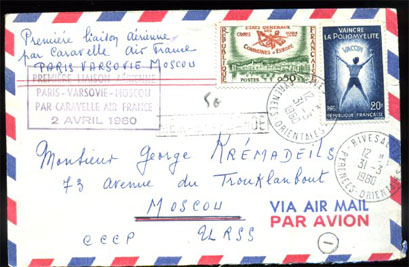 Première liaison aérienne
par Caravelle Air France
PARIS VARSOVIE MOSCOU
PREMIÈRE LIAISON AÉRIENNE
PARIS-VARSOVIE-MOSCOU
PAR CARAVELLE AIR FRANCE
2 AVRIL 1960
ETATS GENERAUX
COMMUNES D'EUROPE
REPUBLIQUE
FRANCAISE
POSTES
0,50
VAINCRE
LA POLIOMYELITE
VACCIN
20F
REPUBLIQUE FRANÇAISE
50
12 H
31-3
1960
PYRENEES-ORIENTALES
RIVESALTES
12 H
31-3
1960
PYRENEES-ORIENTALES
Monsieur George KRÉMADEILS
73 avenue du Trouklanbout
MOSCOU
CCCP URSS
VIA AIR MAIL
PAR AVION
1